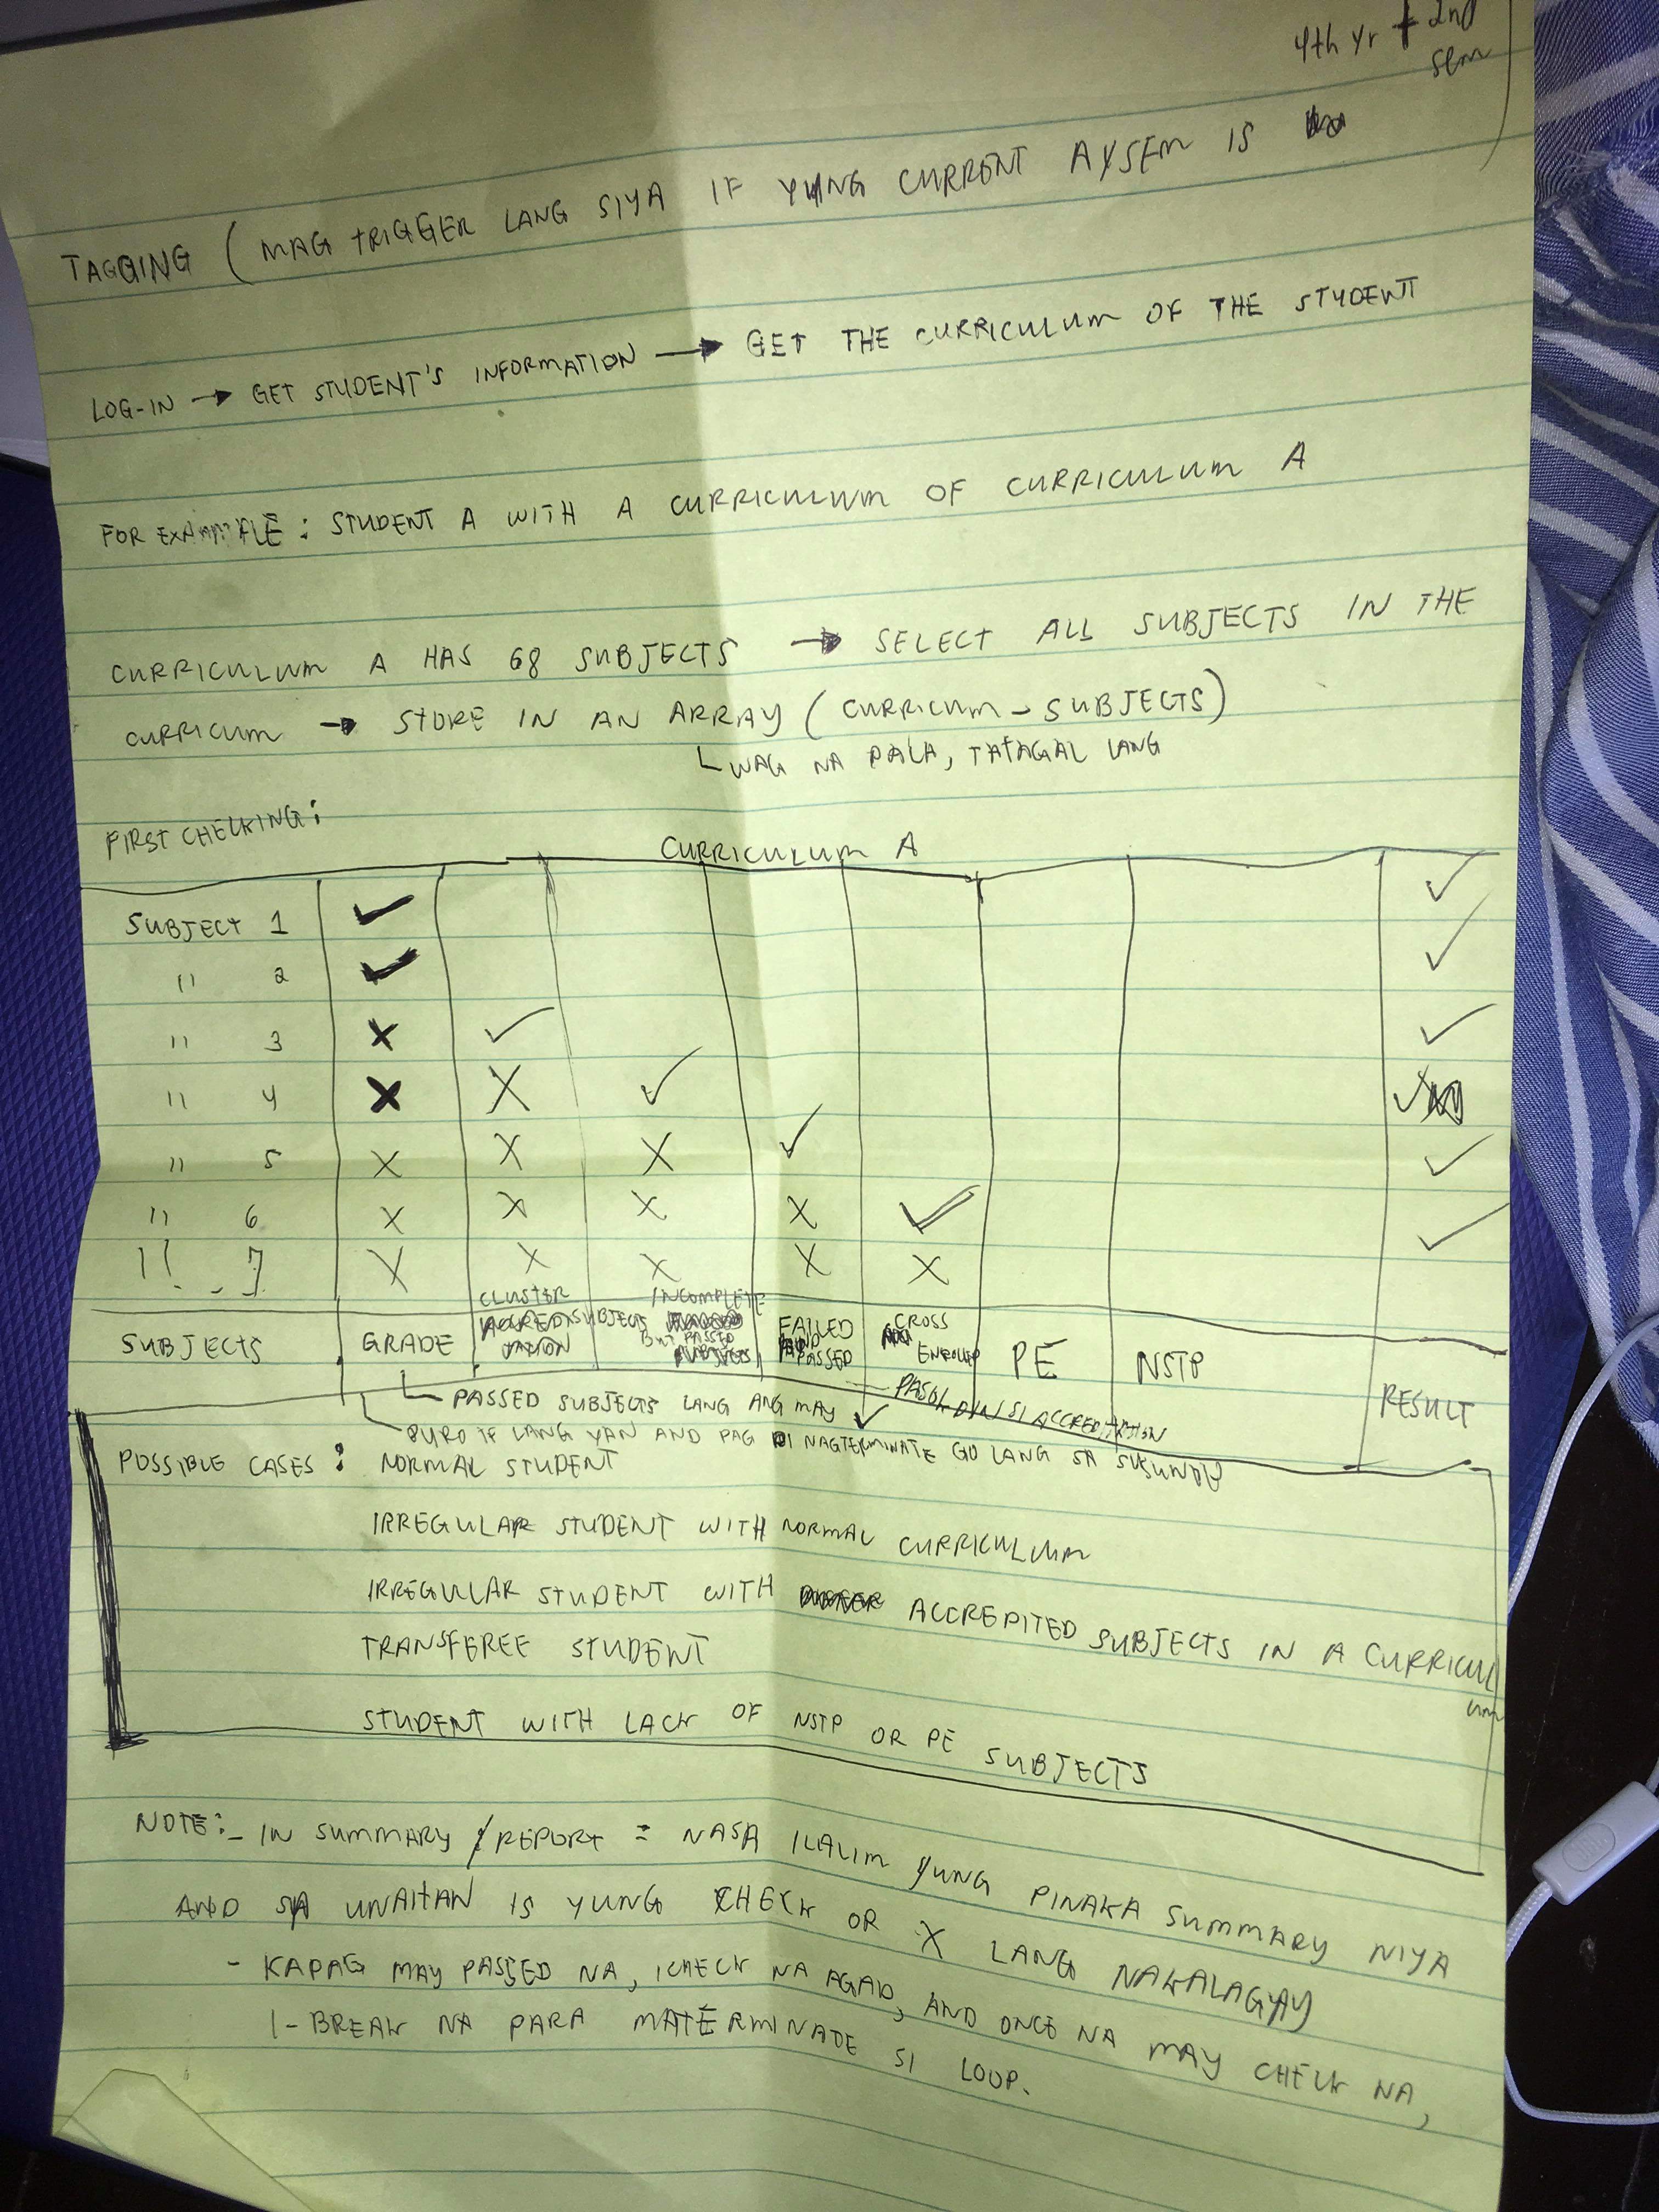 4th yr + 2nd
sem
TAGGING ( MAG TRIGGER LANG SIYA IF YUNG CURRENT AYSEM IS
LOG-IN → GET STUDENT'S INFORMATION → GET THE CURRICULUM OF THE STUDENT
FOR EXAMPLE : STUDENT A WITH A CURRICULUM OF CURRICULUM A
CURRICULUM A HAS 68 SUBJECTS → SELECT ALL SUBJECTS IN THE
CURRICUM → STORE IN AN ARRAY ( CURRICUM - SUBJECTS )
WAG NA PALA, TATAGAL LANG
FIRST CHECKING :
CURRICULUM A
SUBJECT 1 ✓ ✓
" 2 ✓ ✓
" 3 X ✓ ✓
" 4 X X ✓ ✓
" 5 X X X ✓ ✓
" 6 X X X X ✓ ✓
" 7 X X X X X
SUBJECTS
GRADE
CLUSTER
SUBJECTS
INCOMPLETE
BUT PASSED
FAILED
PASSED
CROSS
ENROLLED
PE
NSTP
RESULT
PASSED SUBJECTS LANG ANG MAY ✓
PASOK DIN SI ACCREDITATION
PURO IF LANG YAN AND PAG DI NAGTERMINATE GO LANG SA SUSUNOD
POSSIBLE CASES : NORMAL STUDENT
IRREGULAR STUDENT WITH NORMAL CURRICULUM
IRREGULAR STUDENT WITH ACCREDITED SUBJECTS IN A CURRICUL
um
TRANSFEREE STUDENT
STUDENT WITH LACK OF NSTP OR PE SUBJECTS
NOTE: - IN SUMMARY / REPORT = NASA ILALIM YUNG PINAKA SUMMARY NIYA
AND SA UNAHAN IS YUNG CHECK OR X LANG NAKALAGAY
- KAPAG MAY PASSED NA, ICHECK NA AGAD, AND ONCE NA MAY CHECK NA,
I-BREAK NA PARA MATERMINATE SI LOOP.